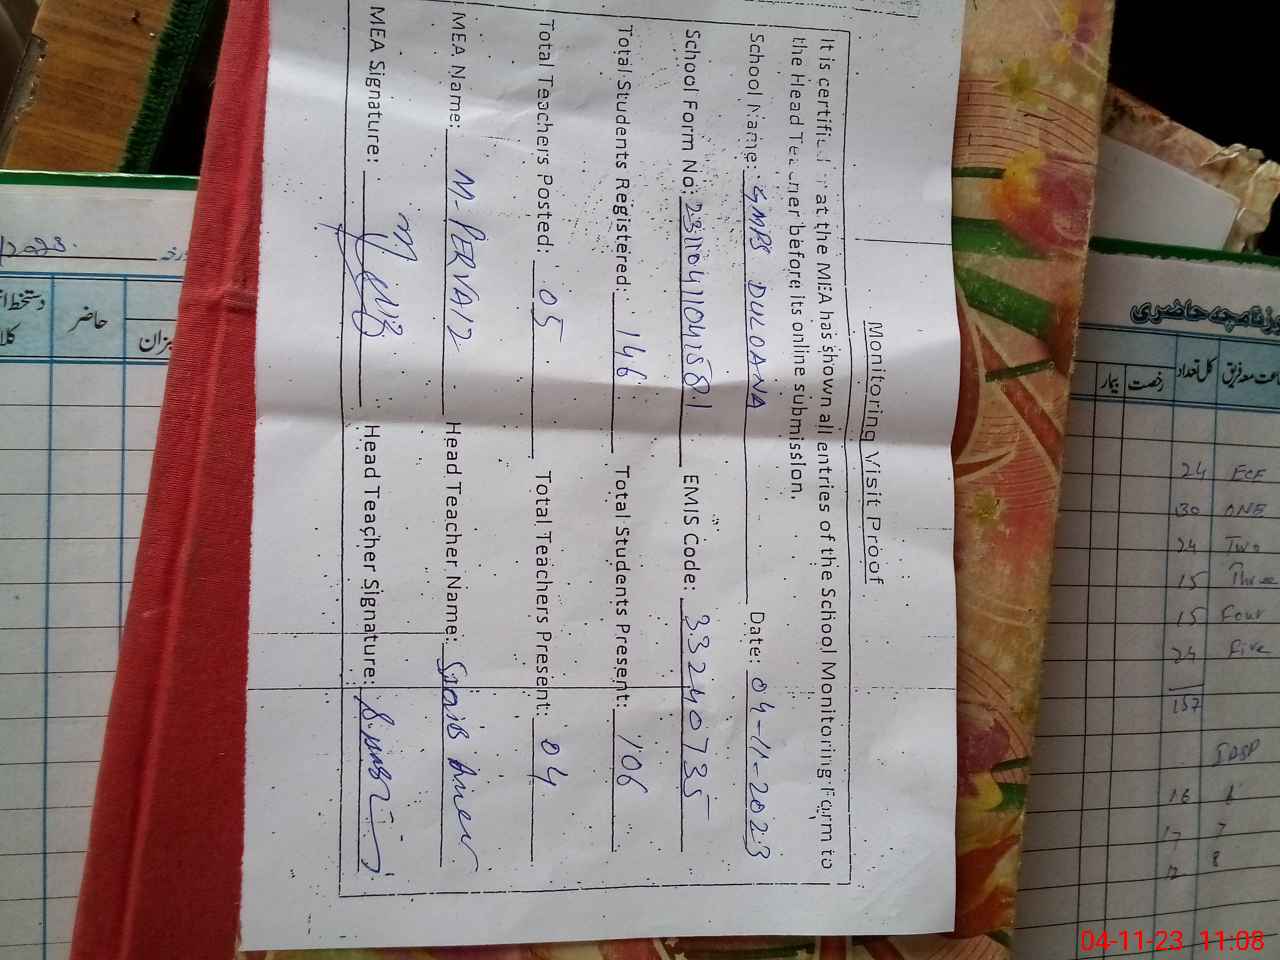 Monitoring Visit Proof
It is certified that the MEA has shown all entries of the School Monitoring Form to
the Head Teacher before its online submission.
School Name: GMPS DULOANA Date: 04-11-2023
School Form No: EMIS Code: 33240735
Total Students Registered: 146 Total Students Present: 106
Total Teachers Posted: 05 Total Teachers Present: 04
MEA Name: M. PERVAIZ Head Teacher Name:
MEA Signature: Head Teacher Signature:
حاضر
میزان
کل تعداد
رخصت
بیمار
24 ECE
30 ONE
24 Two
15 Three
15 Four
24 Five
157
16 6
17 7
12 8
04-11-23 11:08